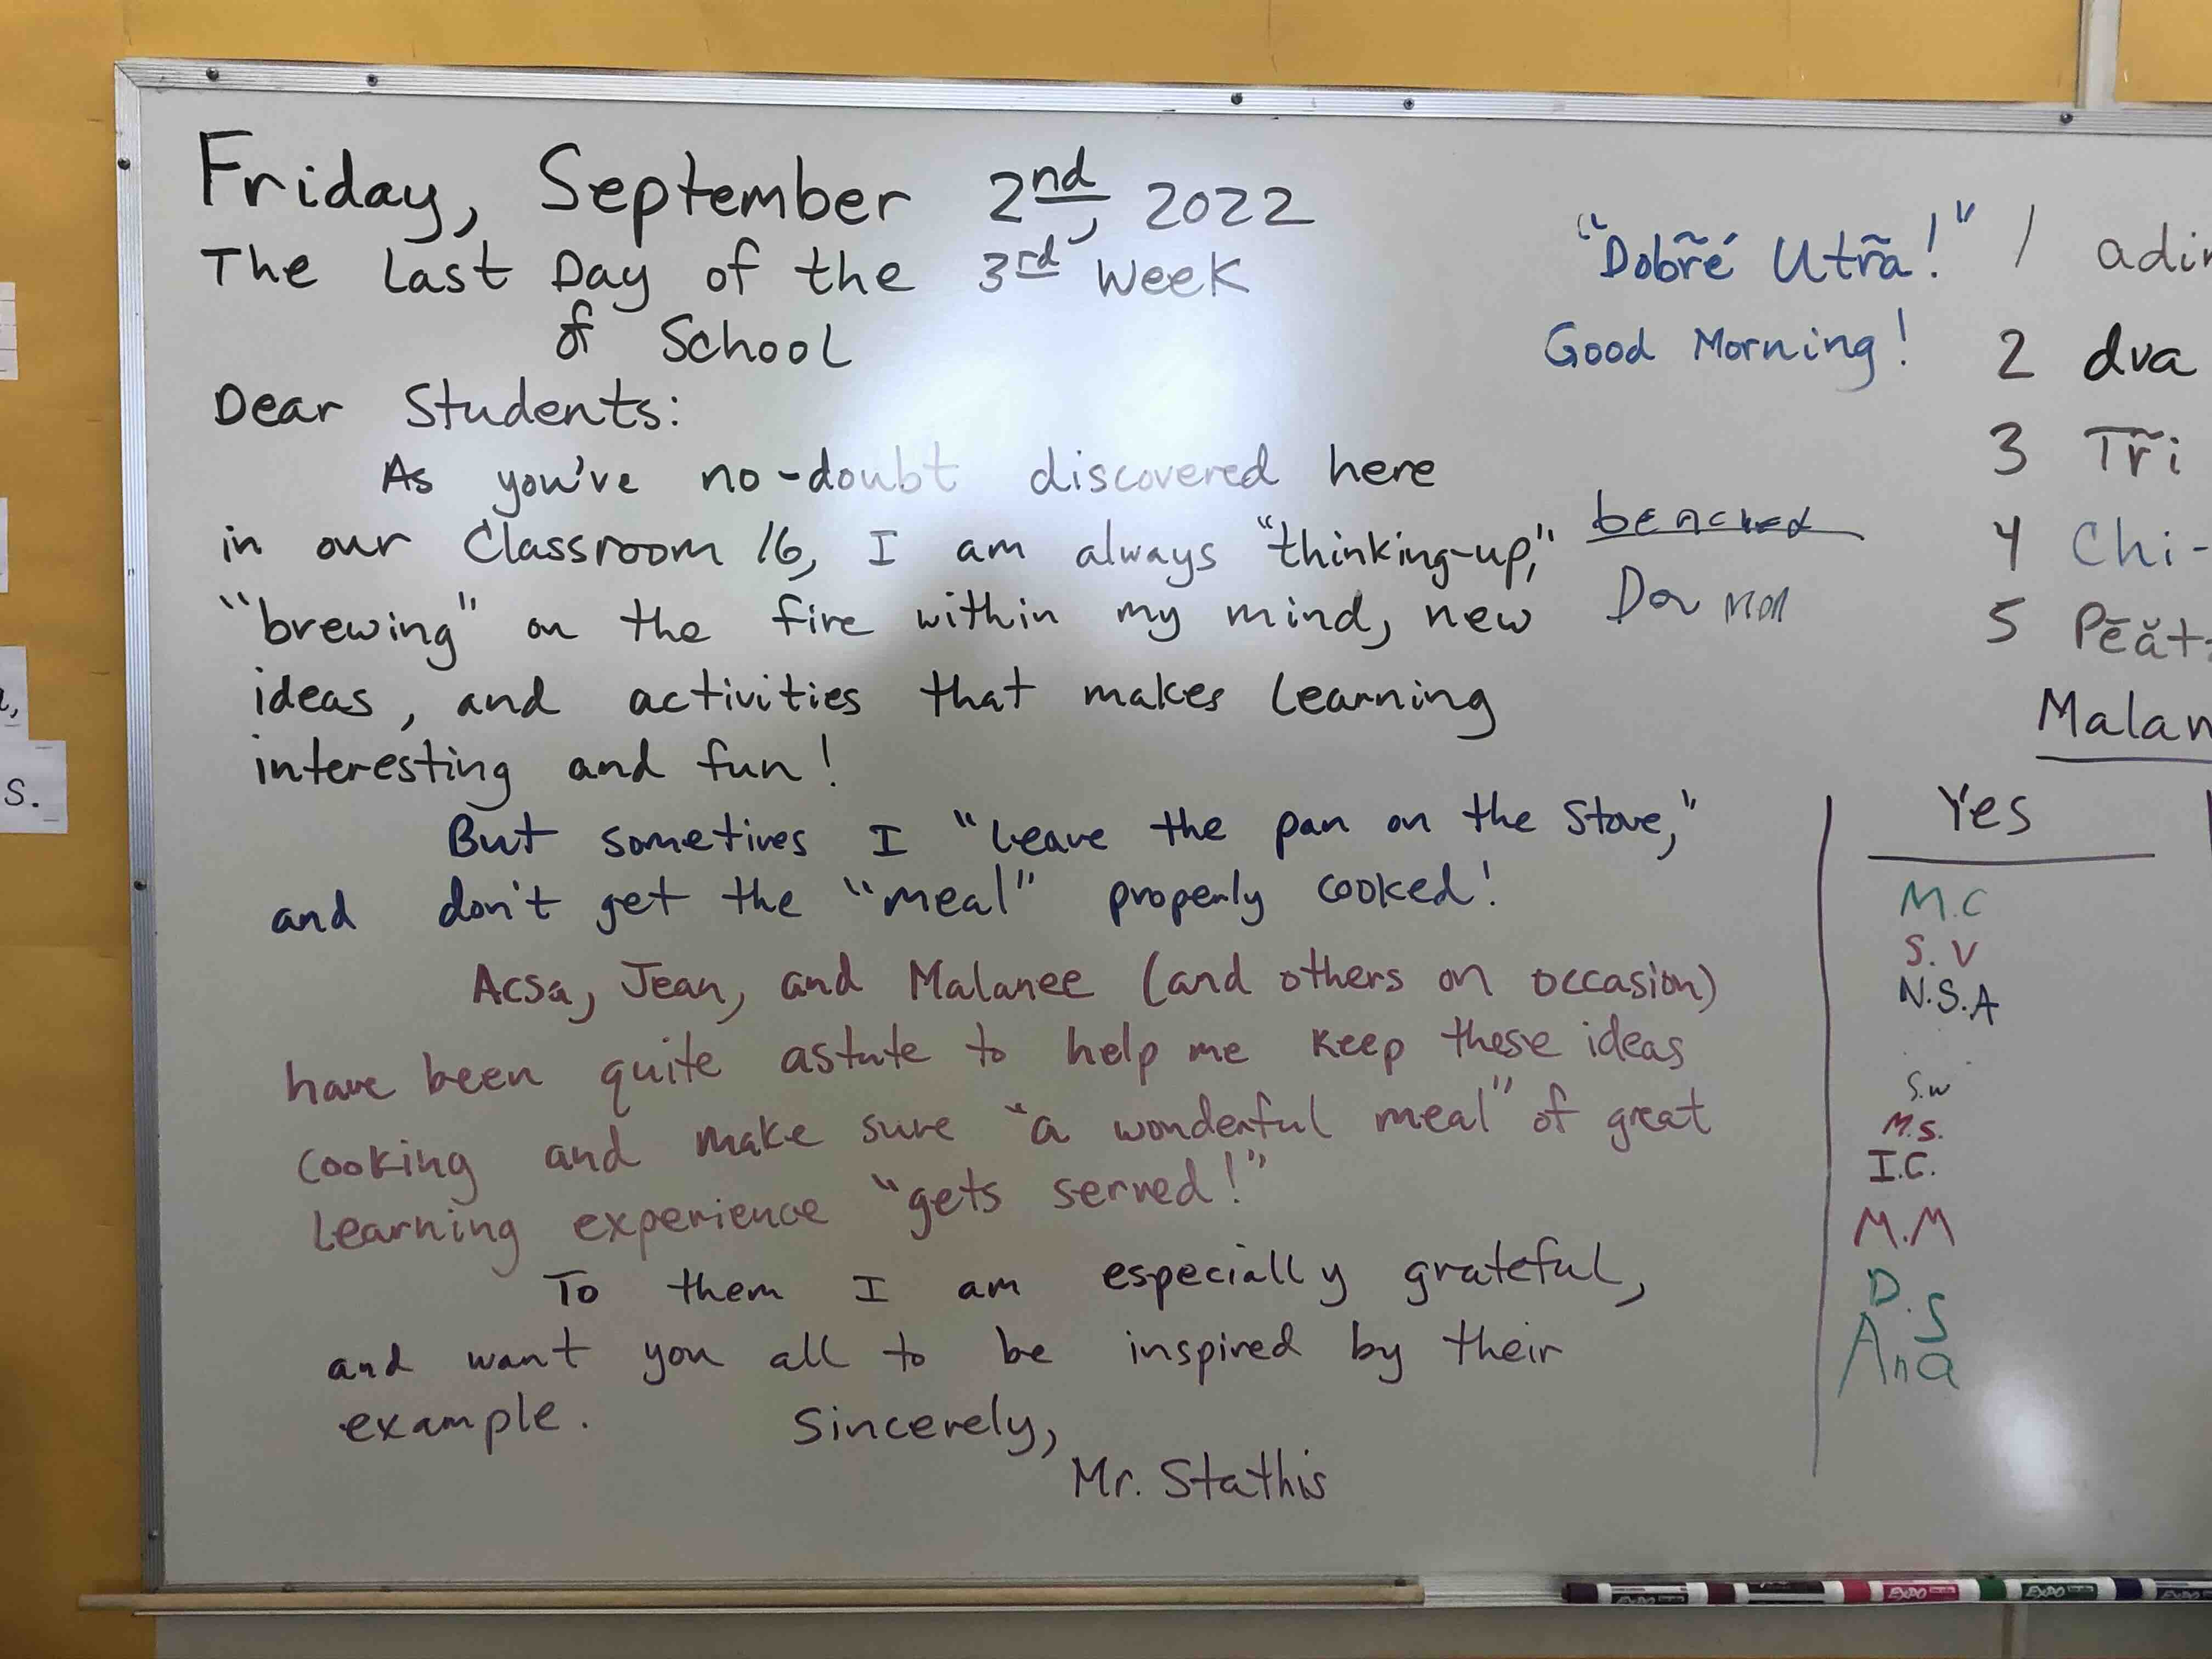 Friday, September 2nd, 2022
The Last Day of the 3rd Week
of School
Dear Students:
As you've no-doubt discovered here
in our Classroom 16, I am always "thinking-up,"
"brewing" on the fire within my mind, new
ideas, and activities that makes learning
interesting and fun!
But sometimes I "leave the pan on the stove,"
and don't get the "meal" properly cooked!
Acsa, Jean, and Malanee (and others on occasion)
have been quite astute to help me keep these ideas
cooking and make sure "a wonderful meal" of great
learning experience "gets served!"
To them I am especially grateful,
and want you all to be inspired by their
example.
Sincerely,
Mr. Stathis
"Dobr̃é Utr̃a!"
Good Morning!
beached
1 adin
2 dva
3 Tr̃i
4 Chi-
5 Pēăt-
Malan
Yes
M.C
S.V
N.S.A
S.W
M.S.
I.C.
M.M
D.S
Ana
s.
EXPO
EXPO
EXPO